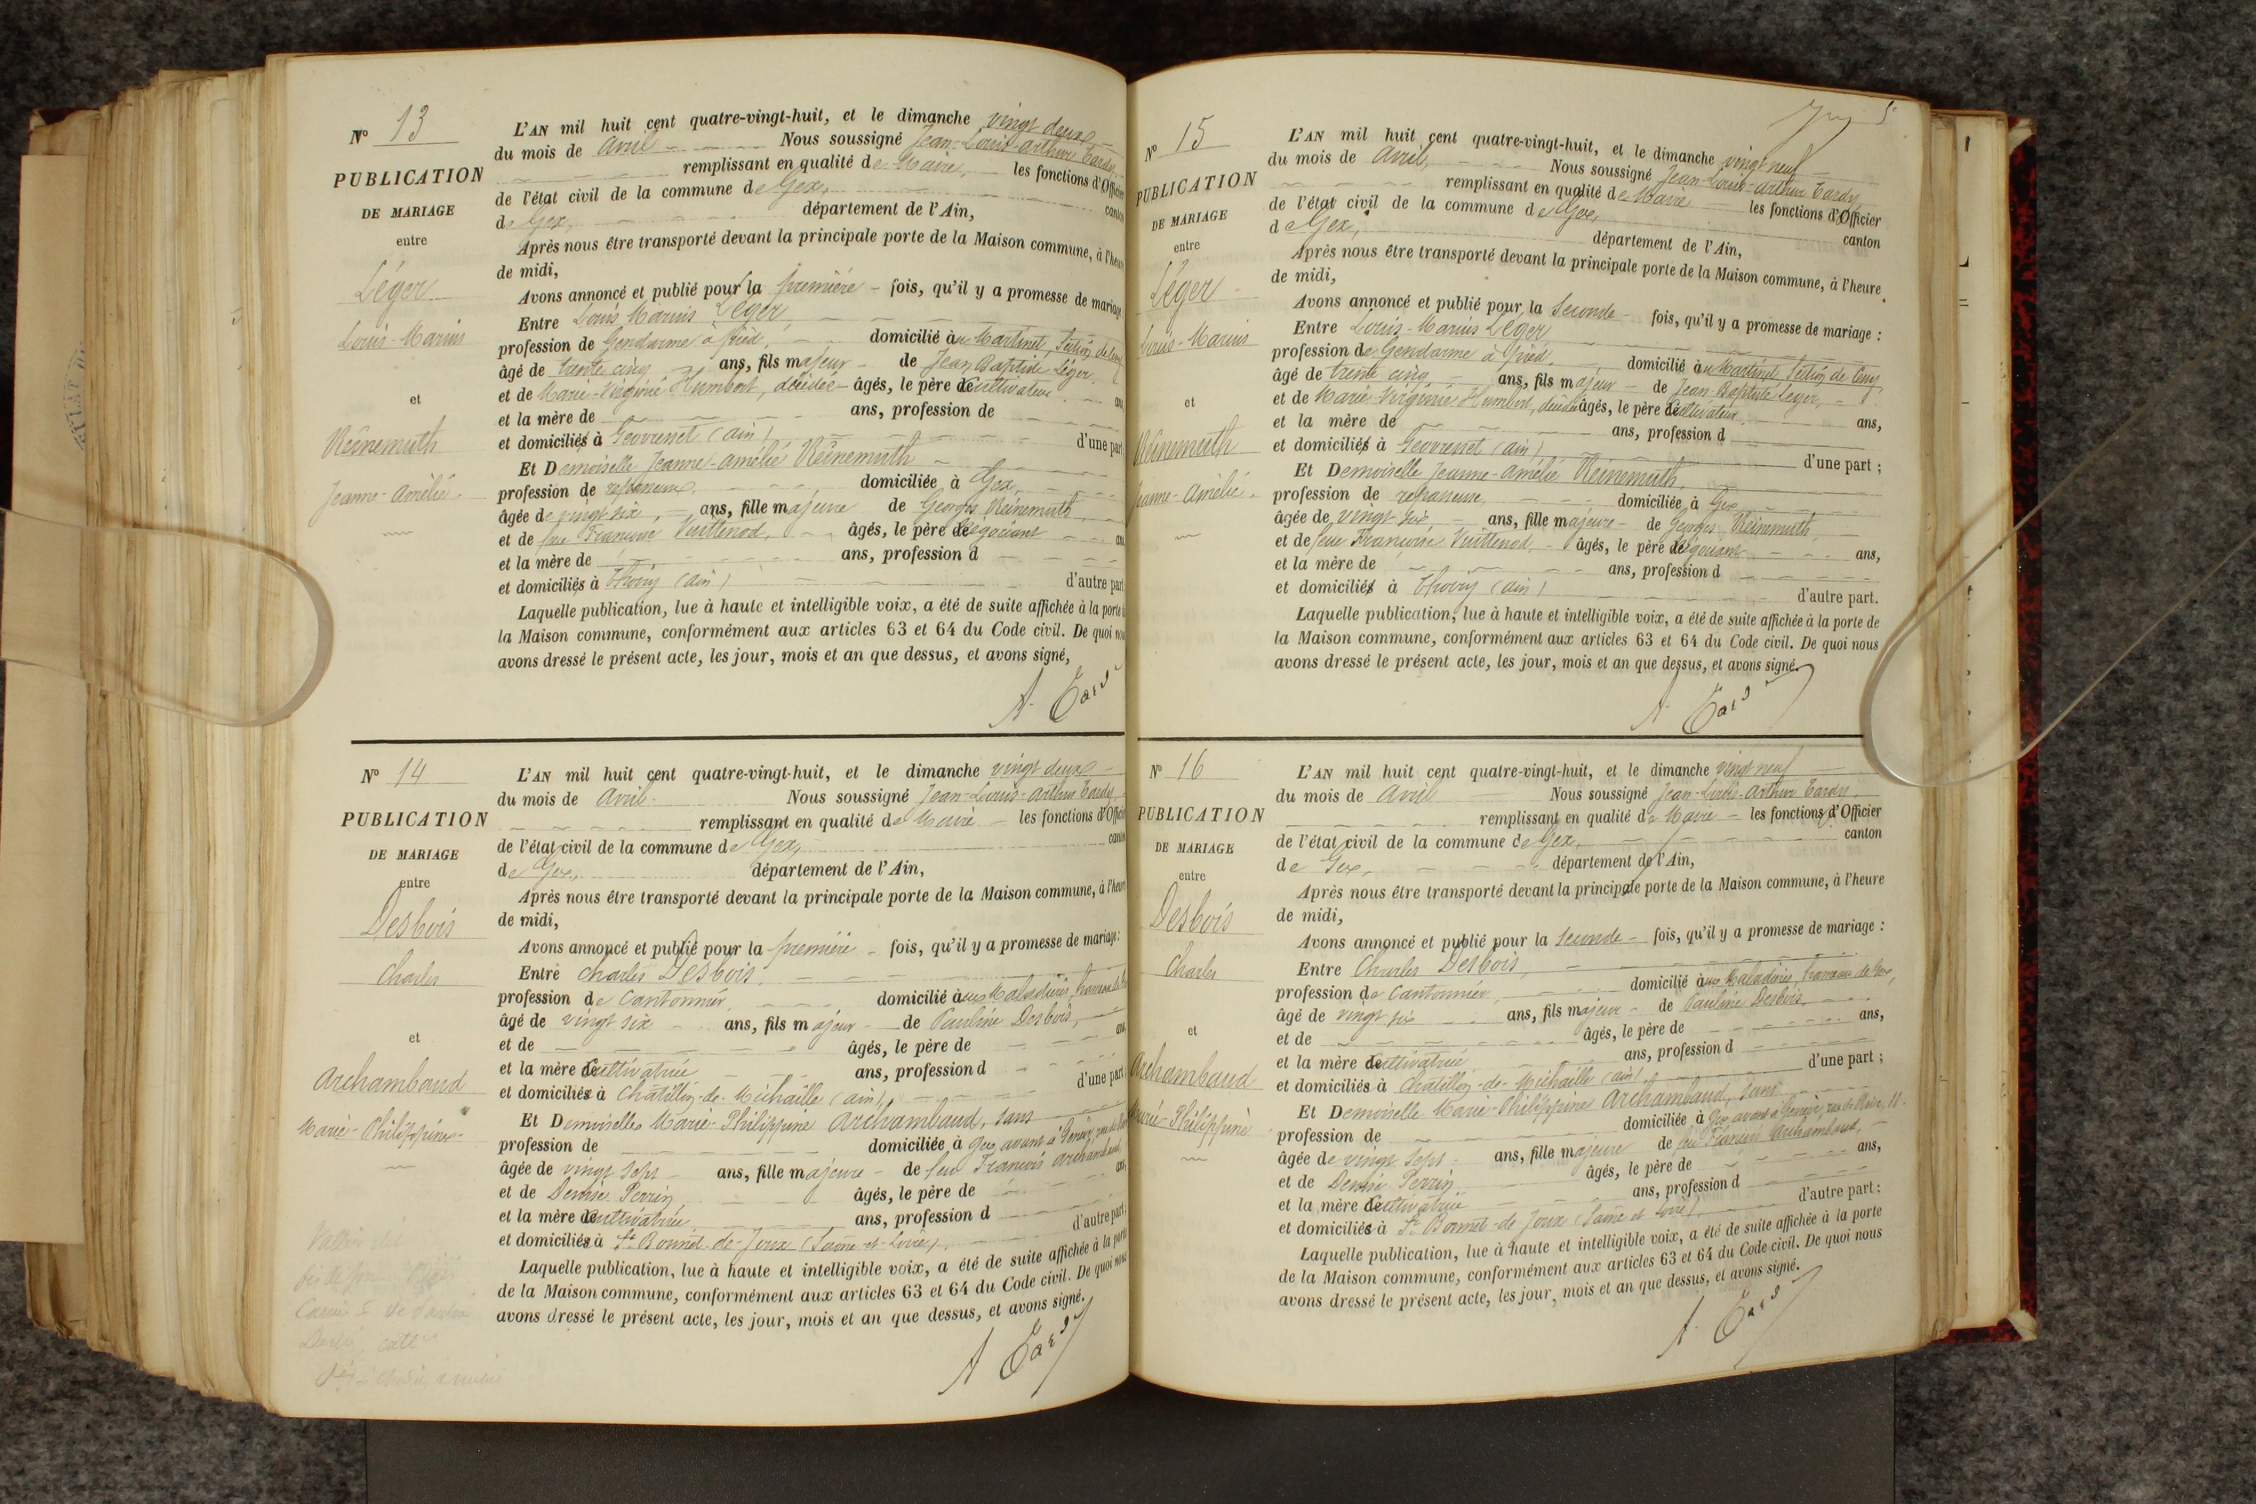 N° 13
PUBLICATION
DE MARIAGE
entre
Léger
Louis-Marius
et
Reinemuth
Jeanne-Amélie
L'AN mil huit cent quatre-vingt-huit, et le dimanche vingt deux
du mois de Avril Nous soussigné Jean-Louis-Arthur Tardy,
remplissant en qualité de Maire, les fonctions d'Officier
de l'état civil de la commune de Gex, canton
de Gex, département de l'Ain,
Après nous être transporté devant la principale porte de la Maison commune, à l'heure
de midi,
Avons annoncé et publié pour la première fois, qu'il y a promesse de mariage
Entre Louis Marius Léger,
profession de Gendarme à pied, domicilié au Martinet, Section de
âgé de trente cinq ans, fils majeur de Jean Baptiste Léger,
et de Marie-Virginie Humbert, décédée âgés, le père de Cultivateur ans
et la mère de ans, profession de
et domiciliés à Geovresset (Ain) d'une part
Et Demoiselle Jeanne-Amélie Reinemuth
profession de repasseuse domiciliée à Gex,
âgée de vingt six, ans, fille majeure de Georges Reinemuth,
et de feue Françoise Vuittenod, âgés, le père de Négociant ans
et la mère de ans, profession d
et domiciliés à Thoiry (Ain) d'autre part
Laquelle publication, lue à haute et intelligible voix, a été de suite affichée à la porte
la Maison commune, conformément aux articles 63 et 64 du Code civil. De quoi nous
avons dressé le présent acte, les jour, mois et an que dessus, et avons signé,
A. Tardy
N° 14
PUBLICATION
DE MARIAGE
entre
Desbois
Charles
et
Archambaud
Marie-Philippine
L'AN mil huit cent quatre-vingt-huit, et le dimanche vingt deux
du mois de Avril Nous soussigné Jean-Louis-Arthur Tardy,
remplissant en qualité de Maire les fonctions d'Officier
de l'état civil de la commune de Gex, canton
de Gex, département de l'Ain,
Après nous être transporté devant la principale porte de la Maison commune, à l'heure
de midi,
Avons annoncé et publié pour la première fois, qu'il y a promesse de mariage:
Entre Charles Desbois,
profession de Cantonnier domicilié à aux Maladières, hameau de Gex
âgé de vingt six ans, fils majeur de Pauline Desbois,
et de âgés, le père de ans,
et la mère de Cultivatrice ans, profession d
et domiciliés à Châtillon-de-Michaille (Ain), d'une part
Et Demoiselle Marie-Philippine Archambaud, sans
profession de domiciliée à Gex, avant à Genève,
âgée de vingt sept ans, fille majeure de feu François Archambaud,
et de Denise Perrin âgés, le père de ans,
et la mère de Cultivatrice ans, profession d
et domiciliés à St Bonnet-de-Joux (Saône-et-Loire), d'autre part:
Laquelle publication, lue à haute et intelligible voix, a été de suite affichée à la porte
de la Maison commune, conformément aux articles 63 et 64 du Code civil. De quoi nous
avons dressé le présent acte, les jour, mois et an que dessus, et avons signé.
A. Tardy
N° 15
PUBLICATION
DE MARIAGE
entre
Léger
Louis-Marius
et
Reinemuth
Jeanne-Amélie
L'AN mil huit cent quatre-vingt-huit, et le dimanche vingt neuf
du mois de Avril, Nous soussigné Jean-Louis-Arthur Tardy,
remplissant en qualité de Maire les fonctions d'Officier
de l'état civil de la commune de Gex, canton
de Gex, département de l'Ain,
Après nous être transporté devant la principale porte de la Maison commune, à l'heure
de midi,
Avons annoncé et publié pour la Seconde fois, qu'il y a promesse de mariage :
Entre Louis-Marius Léger
profession de Gendarme à pied domicilié au Martinet Section de
âgé de trente cinq ans, fils majeur de Jean-Baptiste Léger,
et de Marie-Virginie Humbert, décédée âgés, le père de Cultivateur ans,
et la mère de ans, profession d
et domiciliés à Geovresset (Ain) d'une part ;
Et Demoiselle Jeanne-Amélie Reinemuth.
profession de repasseuse domiciliée à Gex
âgée de vingt six, ans, fille majeure de Georges Reinemuth
et de feue Françoise Vuittenod, âgés, le père de Négociant ans,
et la mère de ans, profession d
et domiciliés à Thoiry (Ain) d'autre part.
Laquelle publication, lue à haute et intelligible voix, a été de suite affichée à la porte de
la Maison commune, conformément aux articles 63 et 64 du Code civil. De quoi nous
avons dressé le présent acte, les jour, mois et an que dessus, et avons signé.
A. Tardy
N° 16
PUBLICATION
DE MARIAGE
entre
Desbois
Charles
et
Archambaud
Marie-Philippine
L'AN mil huit cent quatre-vingt-huit, et le dimanche vingt neuf
du mois de Avril Nous soussigné Jean-Louis-Arthur Tardy,
remplissant en qualité de Maire les fonctions d'Officier
de l'état civil de la commune de Gex, canton
de Gex, département de l'Ain,
Après nous être transporté devant la principale porte de la Maison commune, à l'heure
de midi,
Avons annoncé et publié pour la Seconde fois, qu'il y a promesse de mariage :
Entre Charles Desbois,
profession de Cantonnier, domicilié à aux Maladières, hameau de Gex,
âgé de vingt six ans, fils majeur de Pauline Desbois,
et de âgés, le père de ans,
et la mère de Cultivatrice ans, profession d
et domiciliés à Châtillon-de-Michaille (Ain) d'une part ;
Et Demoiselle Marie-Philippine Archambaud, sans
profession de domiciliée à Gex, avant à Genève, rue du Rhône, 11.
âgée de vingt sept ans, fille majeure de feu François Archambaud,
et de Denise Perrin âgés, le père de ans,
et la mère de Cultivatrice ans, profession d
et domiciliés à St Bonnet-de-Joux (Saône et Loire), d'autre part :
Laquelle publication, lue à haute et intelligible voix, a été de suite affichée à la porte
de la Maison commune, conformément aux articles 63 et 64 du Code civil. De quoi nous
avons dressé le présent acte, les jour, mois et an que dessus, et avons signé.
A. Tardy